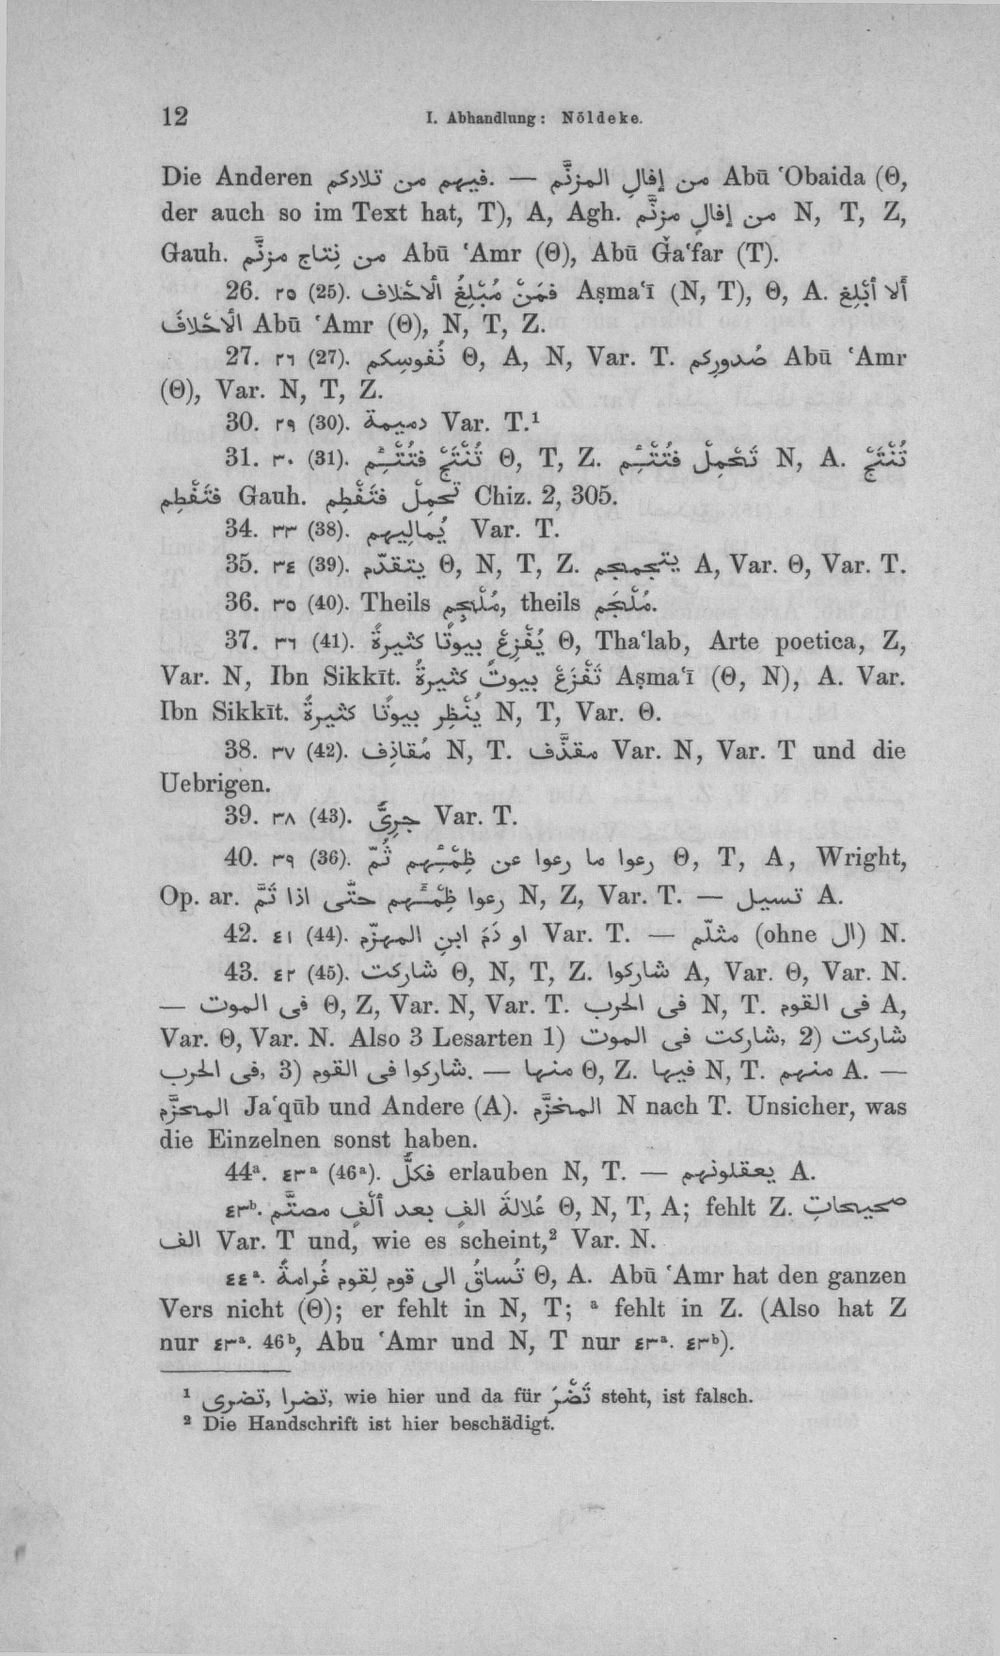 12 I. Abhandlung: Nöldeke.
Die Anderen فيهم من تلادكم. — من إفالِ المزنَّم Abū ʿObaida (Θ,
der auch so im Text hat, T), A, Agh. من إفالٍ مزنَّم N, T, Z,
Gauh. من نِتاج مزنَّم Abū ʿAmr (Θ), Abū Ǧaʿfar (T).
26. ٢٥ (25). فمَنْ مُبْلِغُ الْاحْلاف Aṣmaʿī (N, T), Θ, A. أَلا أَبْلِغ
الْاحْلافَ Abū ʿAmr (Θ), N, T, Z.
27. ٢٦ (27). نُفوسِكم Θ, A, N, Var. T. صُدورِكم Abū ʿAmr
(Θ), Var. N, T, Z.
30. ٢٩ (30). دميمة Var. T.¹
31. ٣٠ (31). تُنْتَجْ فتُتْئِم Θ, T, Z. تَحْمِلْ فتُتْئِم N, A. تُنْتَجْ
فتَفْطِم Gauh. تَحمِلْ فتَفْطِم Chiz. 2, 305.
34. ٣٣ (38). يُماليهم Var. T.
35. ٣٤ (39). يتقدّم Θ, N, T, Z. يتجمجم A, Var. Θ, Var. T.
36. ٣٥ (40). Theils مُلْجِم, theils مُلْجَم.
37. ٣٦ (41). يُفْزِعْ بيوتًا كثيرةً Θ, Thaʿlab, Arte poetica, Z,
Var. N, Ibn Sikkīt. تَفْزَعْ بيوتٌ كثيرةٌ Aṣmaʿī (Θ, N), A. Var.
Ibn Sikkīt. يُنْظِر بيوتًا كثيرةً N, T, Var. Θ.
38. ٣٧ (42). مُقاذِف N, T. مقذَّف Var. N, Var. T und die
Uebrigen.
39. ٣٨ (43). جرِىٌّ Var. T.
40. ٣٩ (36). رعوا ما رعوا من ظِمْئِهم ثُمّ Θ, T, A, Wright,
Op. ar. رعوا ظِمْئَهم حتَّى اذا تَمَّ N, Z, Var. T. — تسيل A.
42. ٤١ (44). او دَمَ ابنِ المهزَّم Var. T. — مثلّم (ohne ال) N.
43. ٤٢ (45). شاركت Θ, N, T, Z. شاركوا A, Var. Θ, Var. N.
— فى الموت Θ, Z, Var. N, Var. T. فى الحرب N, T. فى القوم A,
Var. Θ, Var. N. Also 3 Lesarten 1) شاركت فى الموت, 2) شاركت
فى الحرب, 3) شاركوا فى القوم. — منها Θ, Z. فيها N, T. منهم A. —
المحزَّم Jaʿqūb und Andere (A). المخزَّم N nach T. Unsicher, was
die Einzelnen sonst haben.
44ᵃ. ٤٣ᵃ (46ᵃ). فكلٌّ erlauben N, T. — يعقلونهم A.
٤٣ᵇ. عُلالةَ الفٍ بعد أَلْفٍ مصتَّم Θ, N, T, A; fehlt Z. صحيحاتِ
الف Var. T und, wie es scheint,² Var. N.
٤٤ᵃ. تُساقُ الى قوم لِقوم غُرامةً Θ, A. Abū ʿAmr hat den ganzen
Vers nicht (Θ); er fehlt in N, T; ᵃ fehlt in Z. (Also hat Z
nur ٤٣ᵃ. 46ᵇ, Abu ʿAmr und N, T nur ٤٣ᵃ. ٤٣ᵇ).
¹ تضرا, تضرى, wie hier und da für تَضْرَ steht, ist falsch.
² Die Handschrift ist hier beschädigt.